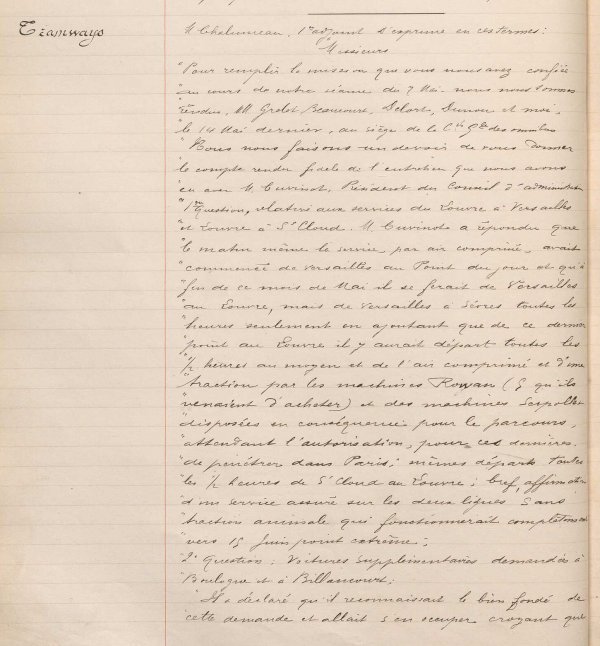 Tramways
M. Chalumeau, 1er adjoint s'exprime en ces termes:
"Messieurs
"Pour remplir la mission que vous nous avez confiée
"au cours de notre séance du 7 Mai nous nous sommes
"rendus, MM. Grelet Beaucourt, Delort, Dunou et moi,
"le 14 Mai dernier, au siège de la Cie Gle des omnibus
"Nous nous faisons un devoir de vous donner
"le compte rendu fidèle de l'entretien que nous avons
"eu avec M. Cuvinot, Président du Conseil d'administration
"1ère Question, relative aux services du Louvre à Versailles
"et Louvre à St Cloud. M. Cuvinot a répondu que
"le matin même le service par air comprimé, avait
"commencé de Versailles au Point du jour et qu'à
"fin de ce mois de Mai il se ferait de Versailles
"au Louvre, mais de Versailles à Sèvres toutes les
"heures seulement en ajoutant que de ce dernier
"point au Louvre il y aurait départ toutes les
"1/2 heures au moyen et de l'air comprimé et d'une
"traction par les machines Rowan (5 qu'ils
"venaient d'acheter) et des machines Serpollet
"disposées en conséquence pour le parcours,
"attendant l'autorisation, pour ces dernières,
"de pénétrer dans Paris; mêmes départs toutes
"les 1/2 heures de St Cloud au Louvre; bref, affirmation
"d'un service assuré sur les deux lignes sans
"traction animale qui fonctionnerait complètement
"vers 15 Juin point extrême;
"2e Question: Voitures supplémentaires demandées à
"Boulogne et à Billancourt:
"Il a déclaré qu'il reconnaissait le bien fondé de
"cette demande et allait s'en occuper croyant que